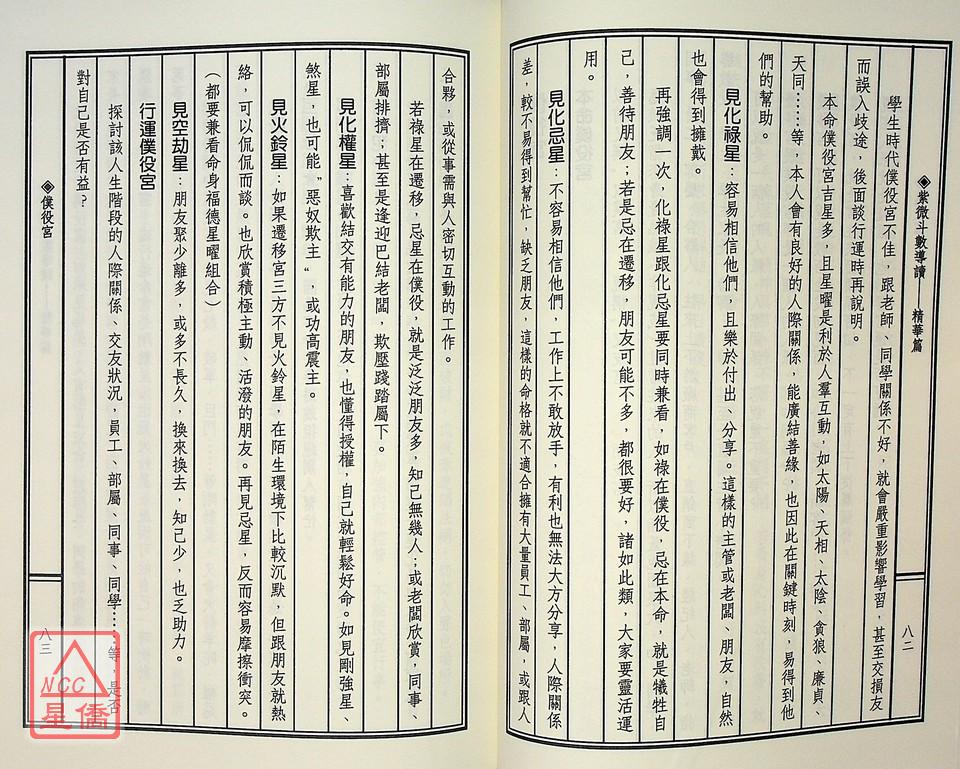 ◈紫微斗數導讀——精華篇
八二
學生時代僕役宮不佳，跟老師、同學關係不好，就會嚴重影響學習，甚至交損友
而誤入歧途，後面談行運時再說明。
本命僕役宮吉星多，且星曜是利於人羣互動，如太陽、天相、太陰、貪狼、廉貞、
天同……等，本人會有良好的人際關係，能廣結善緣，也因此在關鍵時刻，易得到他
們的幫助。
見化祿星：容易相信他們，且樂於付出、分享。這樣的主管或老闆、朋友，自然
也會得到擁戴。
再強調一次，化祿星跟化忌星要同時兼看，如祿在僕役，忌在本命，就是犧牲自
己，善待朋友；若是忌在遷移，朋友可能不多，都很要好，諸如此類，大家要靈活運
用。
見化忌星：不容易相信他們，工作上不敢放手，有利也無法大方分享，人際關係
差，較不易得到幫忙，缺乏朋友，這樣的命格就不適合擁有大量員工、部屬，或跟人
合夥，或從事需與人密切互動的工作。
若祿星在遷移，忌星在僕役，就是泛泛朋友多，知己無幾人；或老闆欣賞，同事、
部屬排擠；甚至是逢迎巴結老闆，欺壓踐踏屬下。
見化權星：喜歡結交有能力的朋友，也懂得授權，自己就輕鬆好命。如見剛強星、
煞星，也可能”惡奴欺主“，或功高震主。
見火鈴星：如果遷移宮三方不見火鈴星，在陌生環境下比較沉默，但跟朋友就熱
絡，可以侃侃而談。也欣賞積極主動、活潑的朋友。再見忌星，反而容易摩擦衝突。
（都要兼看命身福德星曜組合）
見空劫星：朋友聚少離多，或多不長久，換來換去，知己少，也乏助力。
行運僕役宮
探討該人生階段的人際關係、交友狀況，員工、部屬、同事、同學……等，是否
對自己是否有益？
◈僕役宮
八三
NCC
星僑